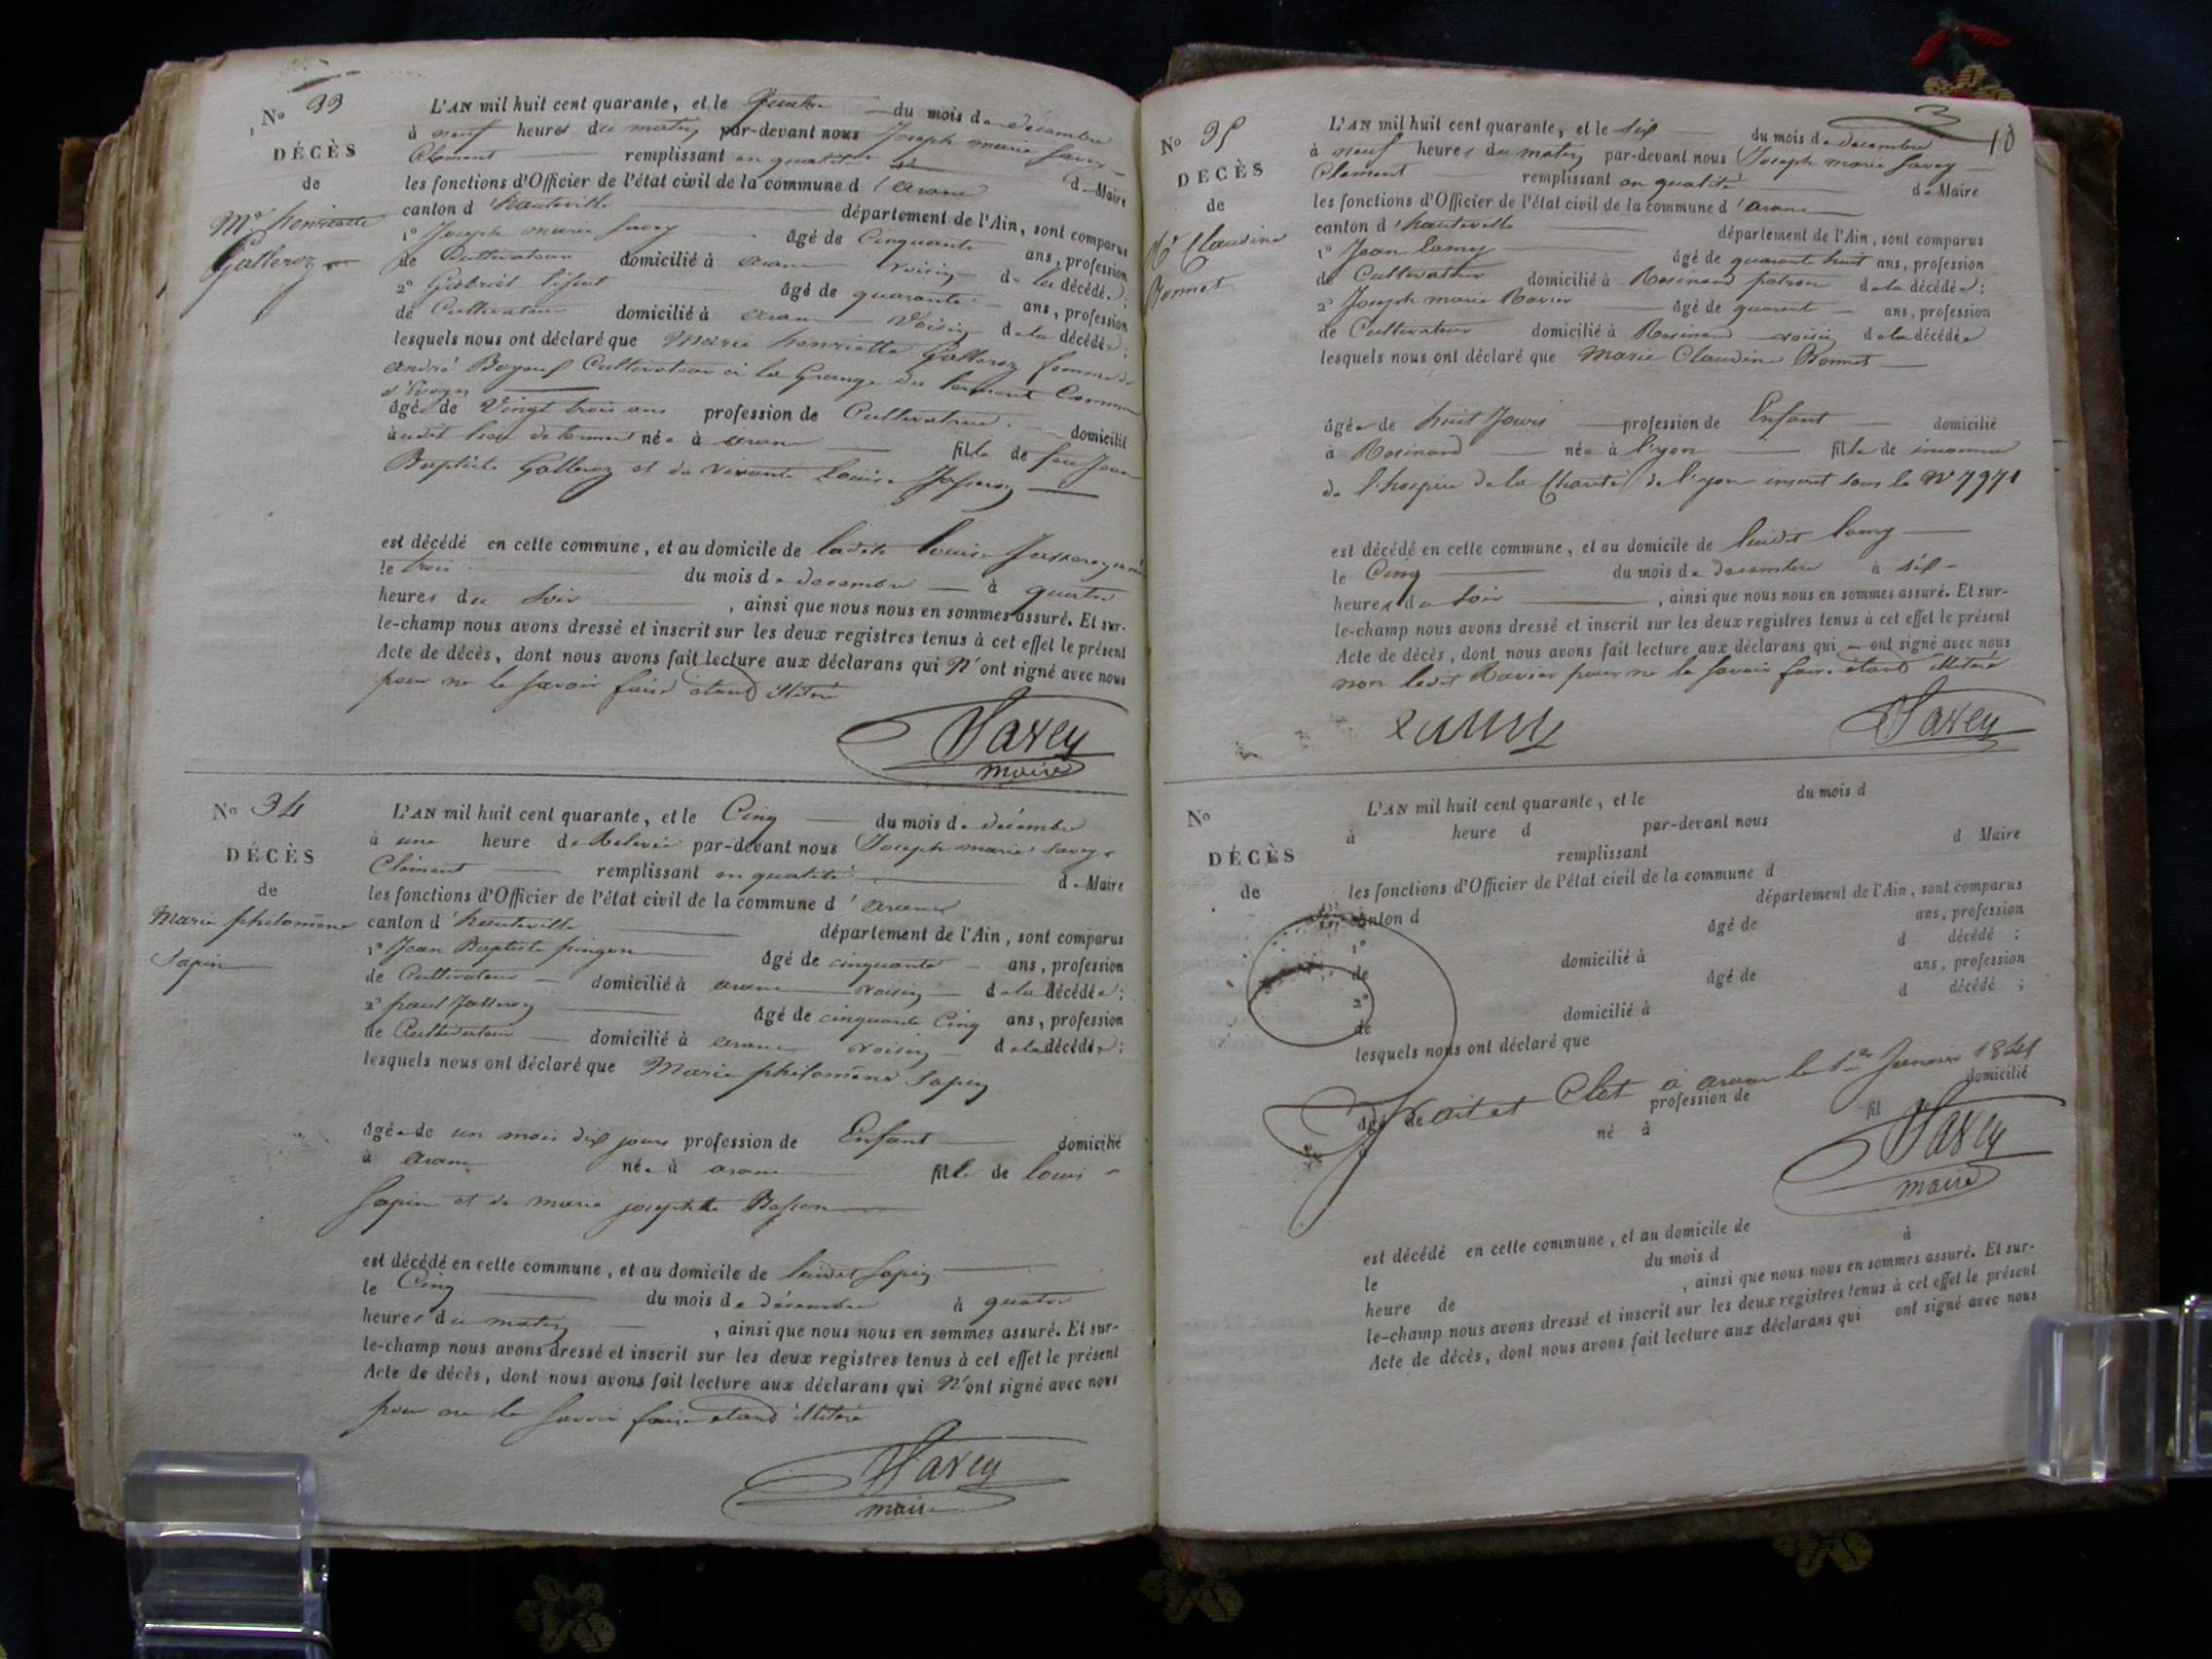 No 33
DÉCÈS
de
Mie henriette
Galleroz
L'AN mil huit cent quarante, et le quatre du mois de décembre
à neuf heures du matin par-devant nous Joseph marie Savey
Clement remplissant en qualité de Maire
les fonctions d'Officier de l'état civil de la commune d'aranc
canton d'hauteville département de l'Ain, sont comparus
1° Joseph marie Savey âgé de Cinquante ans, profession
de Cultivateur domicilié à aranc voisin de la décédée;
2° Gabriel âgé de quarante ans, profession
de Cultivateur domicilié à aranc voisin de la décédée;
lesquels nous ont déclaré que Marie henriette Galleroz femme de
andré Cultivateur à la Grange du Commune
d'Evoges
âgée de Vingt trois ans profession de Cultivatrice domicilié
audit lieu née à aranc fille de feu Jean
Baptiste Galleroz et de vivante Louise
est décédé en cette commune, et au domicile de ladite Louise
le trois du mois de decembre à quatre
heures du soir , ainsi que nous nous en sommes assuré. Et sur-
le-champ nous avons dressé et inscrit sur les deux registres tenus à cet effet le présent
Acte de décès, dont nous avons fait lecture aux déclarans qui N'ont signé avec nous
pour ne le savoir faire étand illiteré
Savey
maire
No 34
DÉCÈS
de
Marie philomène
Sapin
L'AN mil huit cent quarante, et le Cinq du mois de décembre
à une heure de Relevée par-devant nous Joseph marie Savey
Clément remplissant en qualité de Maire
les fonctions d'Officier de l'état civil de la commune d'aranc
canton d'hauteville département de l'Ain, sont comparus
1° Jean Baptiste pingon âgé de cinquante ans, profession
de Cultivateur domicilié à aranc voisin de la décédée;
2° paul âgé de cinquante Cinq ans, profession
de Cultivateur domicilié à aranc voisin de la décédée;
lesquels nous ont déclaré que Marie philomène Sapin
âgée de un mois dix jours profession de Enfant domicilié
à aranc née à aranc fille de louis
Sapin et de marie josephte
est décédé en cette commune, et au domicile de luidit Sapin
le Cinq du mois de décembre à quatre
heures du matin , ainsi que nous nous en sommes assuré. Et sur-
le-champ nous avons dressé et inscrit sur les deux registres tenus à cet effet le présent
Acte de décès, dont nous avons fait lecture aux déclarans qui N'ont signé avec nous
pour ne le savoir faire etand illiteré
Savey
maire
10
No 35
DÉCÈS
de
Mie Claudine
Bonnet
L'AN mil huit cent quarante, et le six du mois de décembre
à neuf heures du matin par-devant nous Joseph marie Savey
Clement remplissant en qualité de Maire
les fonctions d'Officier de l'état civil de la commune d'aranc
canton d'hauteville département de l'Ain, sont comparus
1° Jean Lamy âgé de quarante huit ans, profession
de Cultivateur domicilié à Resinand patron de la décédée;
2° Joseph marie Ravier âgé de quarante ans, profession
de Cultivateur domicilié à Resinand voisin de la décédée
lesquels nous ont déclaré que Marie Claudine Bonnet
âgée de huit Jours profession de Enfant domicilié
à Resinand née à Lyon fille de inconnu
de l'hospice de la Charité de Lyon inscrit sous le No 7971
est décédé en cette commune, et au domicile de luidit Lamy
le Cinq du mois de decembre à six
heures du soir , ainsi que nous nous en sommes assuré. Et sur-
le-champ nous avons dressé et inscrit sur les deux registres tenus à cet effet le présent
Acte de décès, dont nous avons fait lecture aux déclarans qui ont signé avec nous
non ledit Ravier pour ne le savoir faire étand illiteré
Savey
No
DÉCÈS
de
L'AN mil huit cent quarante, et le du mois d
à heure d par-devant nous
remplissant d Maire
les fonctions d'Officier de l'état civil de la commune d
canton d département de l'Ain, sont comparus
1° âgé de ans, profession
de domicilié à d décédé ;
2° âgé de ans, profession
de domicilié à d décédé ;
lesquels nous ont déclaré que
fait et Clot à aranc le 1er Janvier 1841
âgé de profession de domicilié
né à fil
Savey
maire
est décédé en cette commune, et au domicile de
le du mois d à
heure de , ainsi que nous nous en sommes assuré. Et sur-
le-champ nous avons dressé et inscrit sur les deux registres tenus à cet effet le présent
Acte de décès, dont nous avons fait lecture aux déclarans qui ont signé avec nous